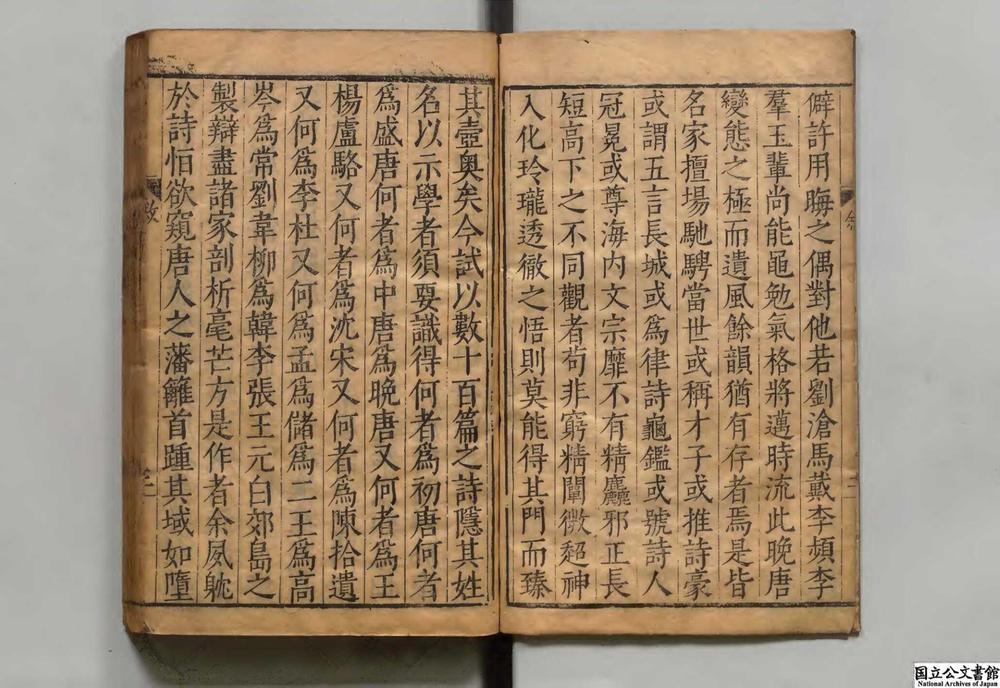 僻許用晦之偶對他若劉滄馬戴李頻李
羣玉輩尚能黽勉氣格將邁時流此晚唐
變態之極而遺風餘韻猶有存者焉是皆
名家擅場馳騁當世或稱才子或推詩豪
或謂五言長城或為律詩龜鑑或號詩人
冠冕或尊海內文宗靡不有精麤邪正長
短高下之不同觀者苟非窮精闡微超神
入化玲瓏透徹之悟則莫能得其門而臻
其壼奥矣今試以數十百篇之詩隱其姓
名以示學者須要識得何者爲初唐何者
爲盛唐何者為中唐為晚唐又何者為王
楊盧駱又何者為沈宋又何者為陳拾遺
又何為李杜又何為孟為儲為二王為高
岑為常劉韋柳為韓李張王元白郊島之
製辯盡諸家剖析毫芒方是作者余夙躭
於詩怕欲窺唐人之藩籬首踵其域如墮
国立公文書館
National Archives of Japan